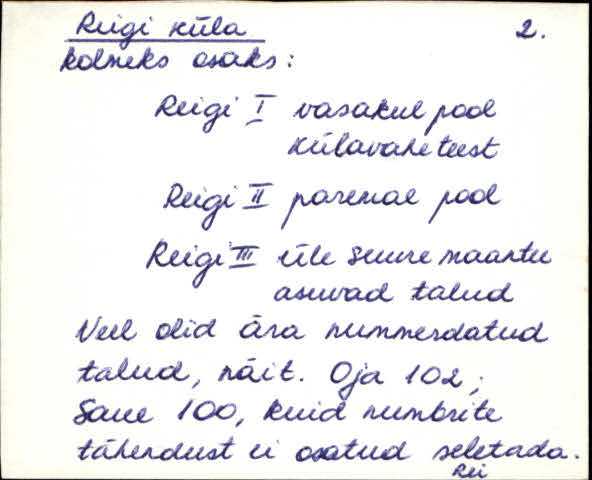 Reigi küla 2.
kolmeks osaks:
Reigi I vasakul pool
külavaheteest
Reigi II paremal pool
Reigi III üle suure maantee
asuvad talud
Veel olid ära nummerdatud
talud, näit. Oja 102;
Saue 100, kuid numbrite
tähendust ei osatud seletada.
Rei